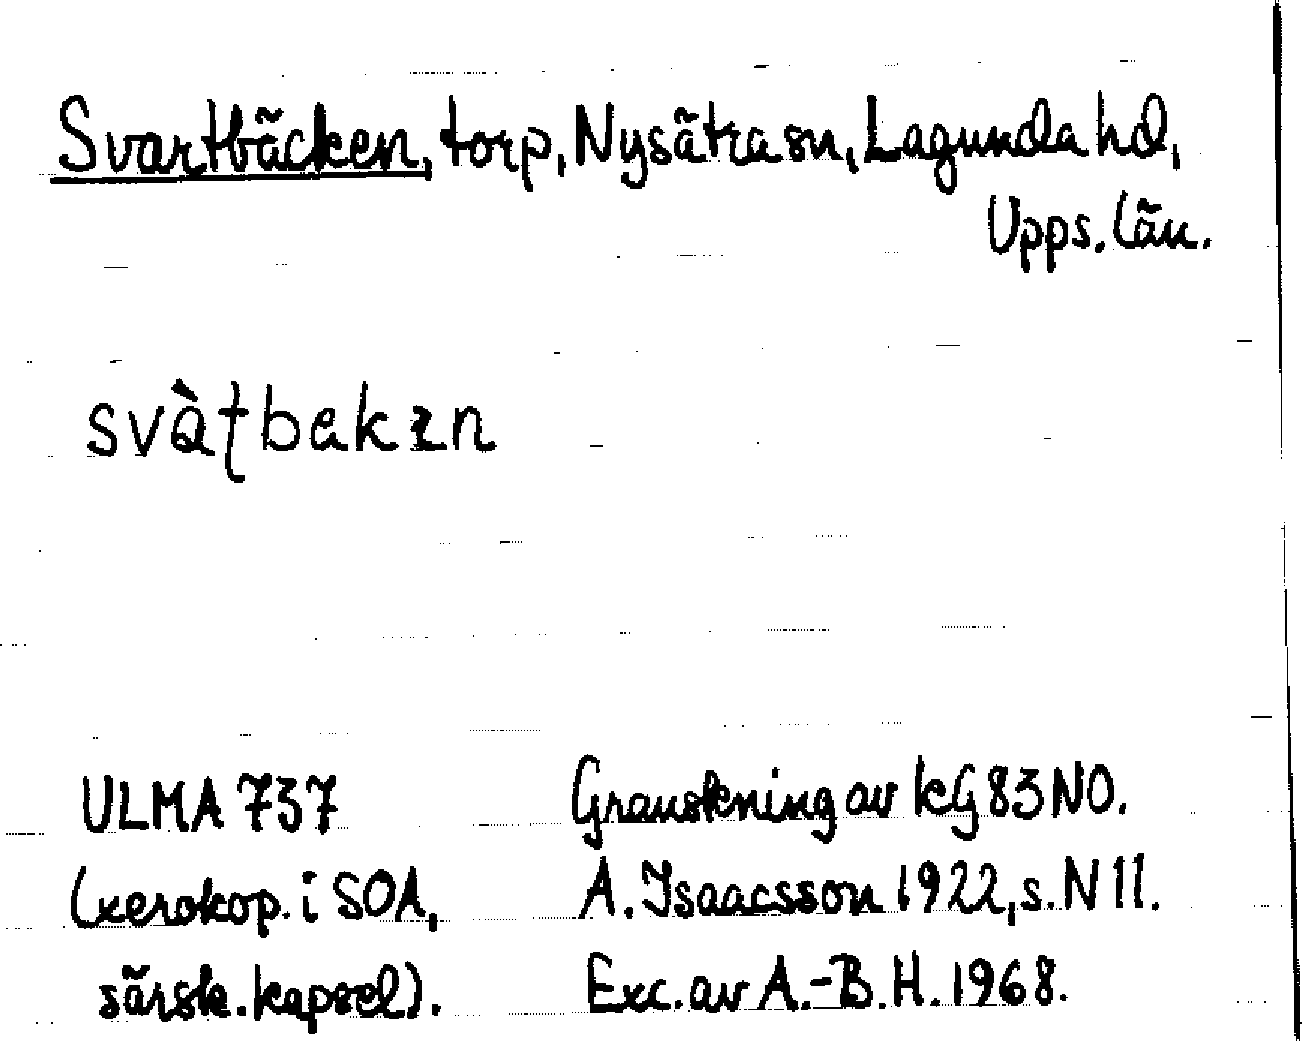 Svartbäcken, torp, Nysätra sn, Lagunda hd,
Upps. län.
svàtbekən
ULMA 737
(xerokop. i SOA,
särsk. kapsel).
Granskning av kG 83 NO.
A. Isaacsson 1922, s. N 11.
Exc. av A.-B. H. 1968.